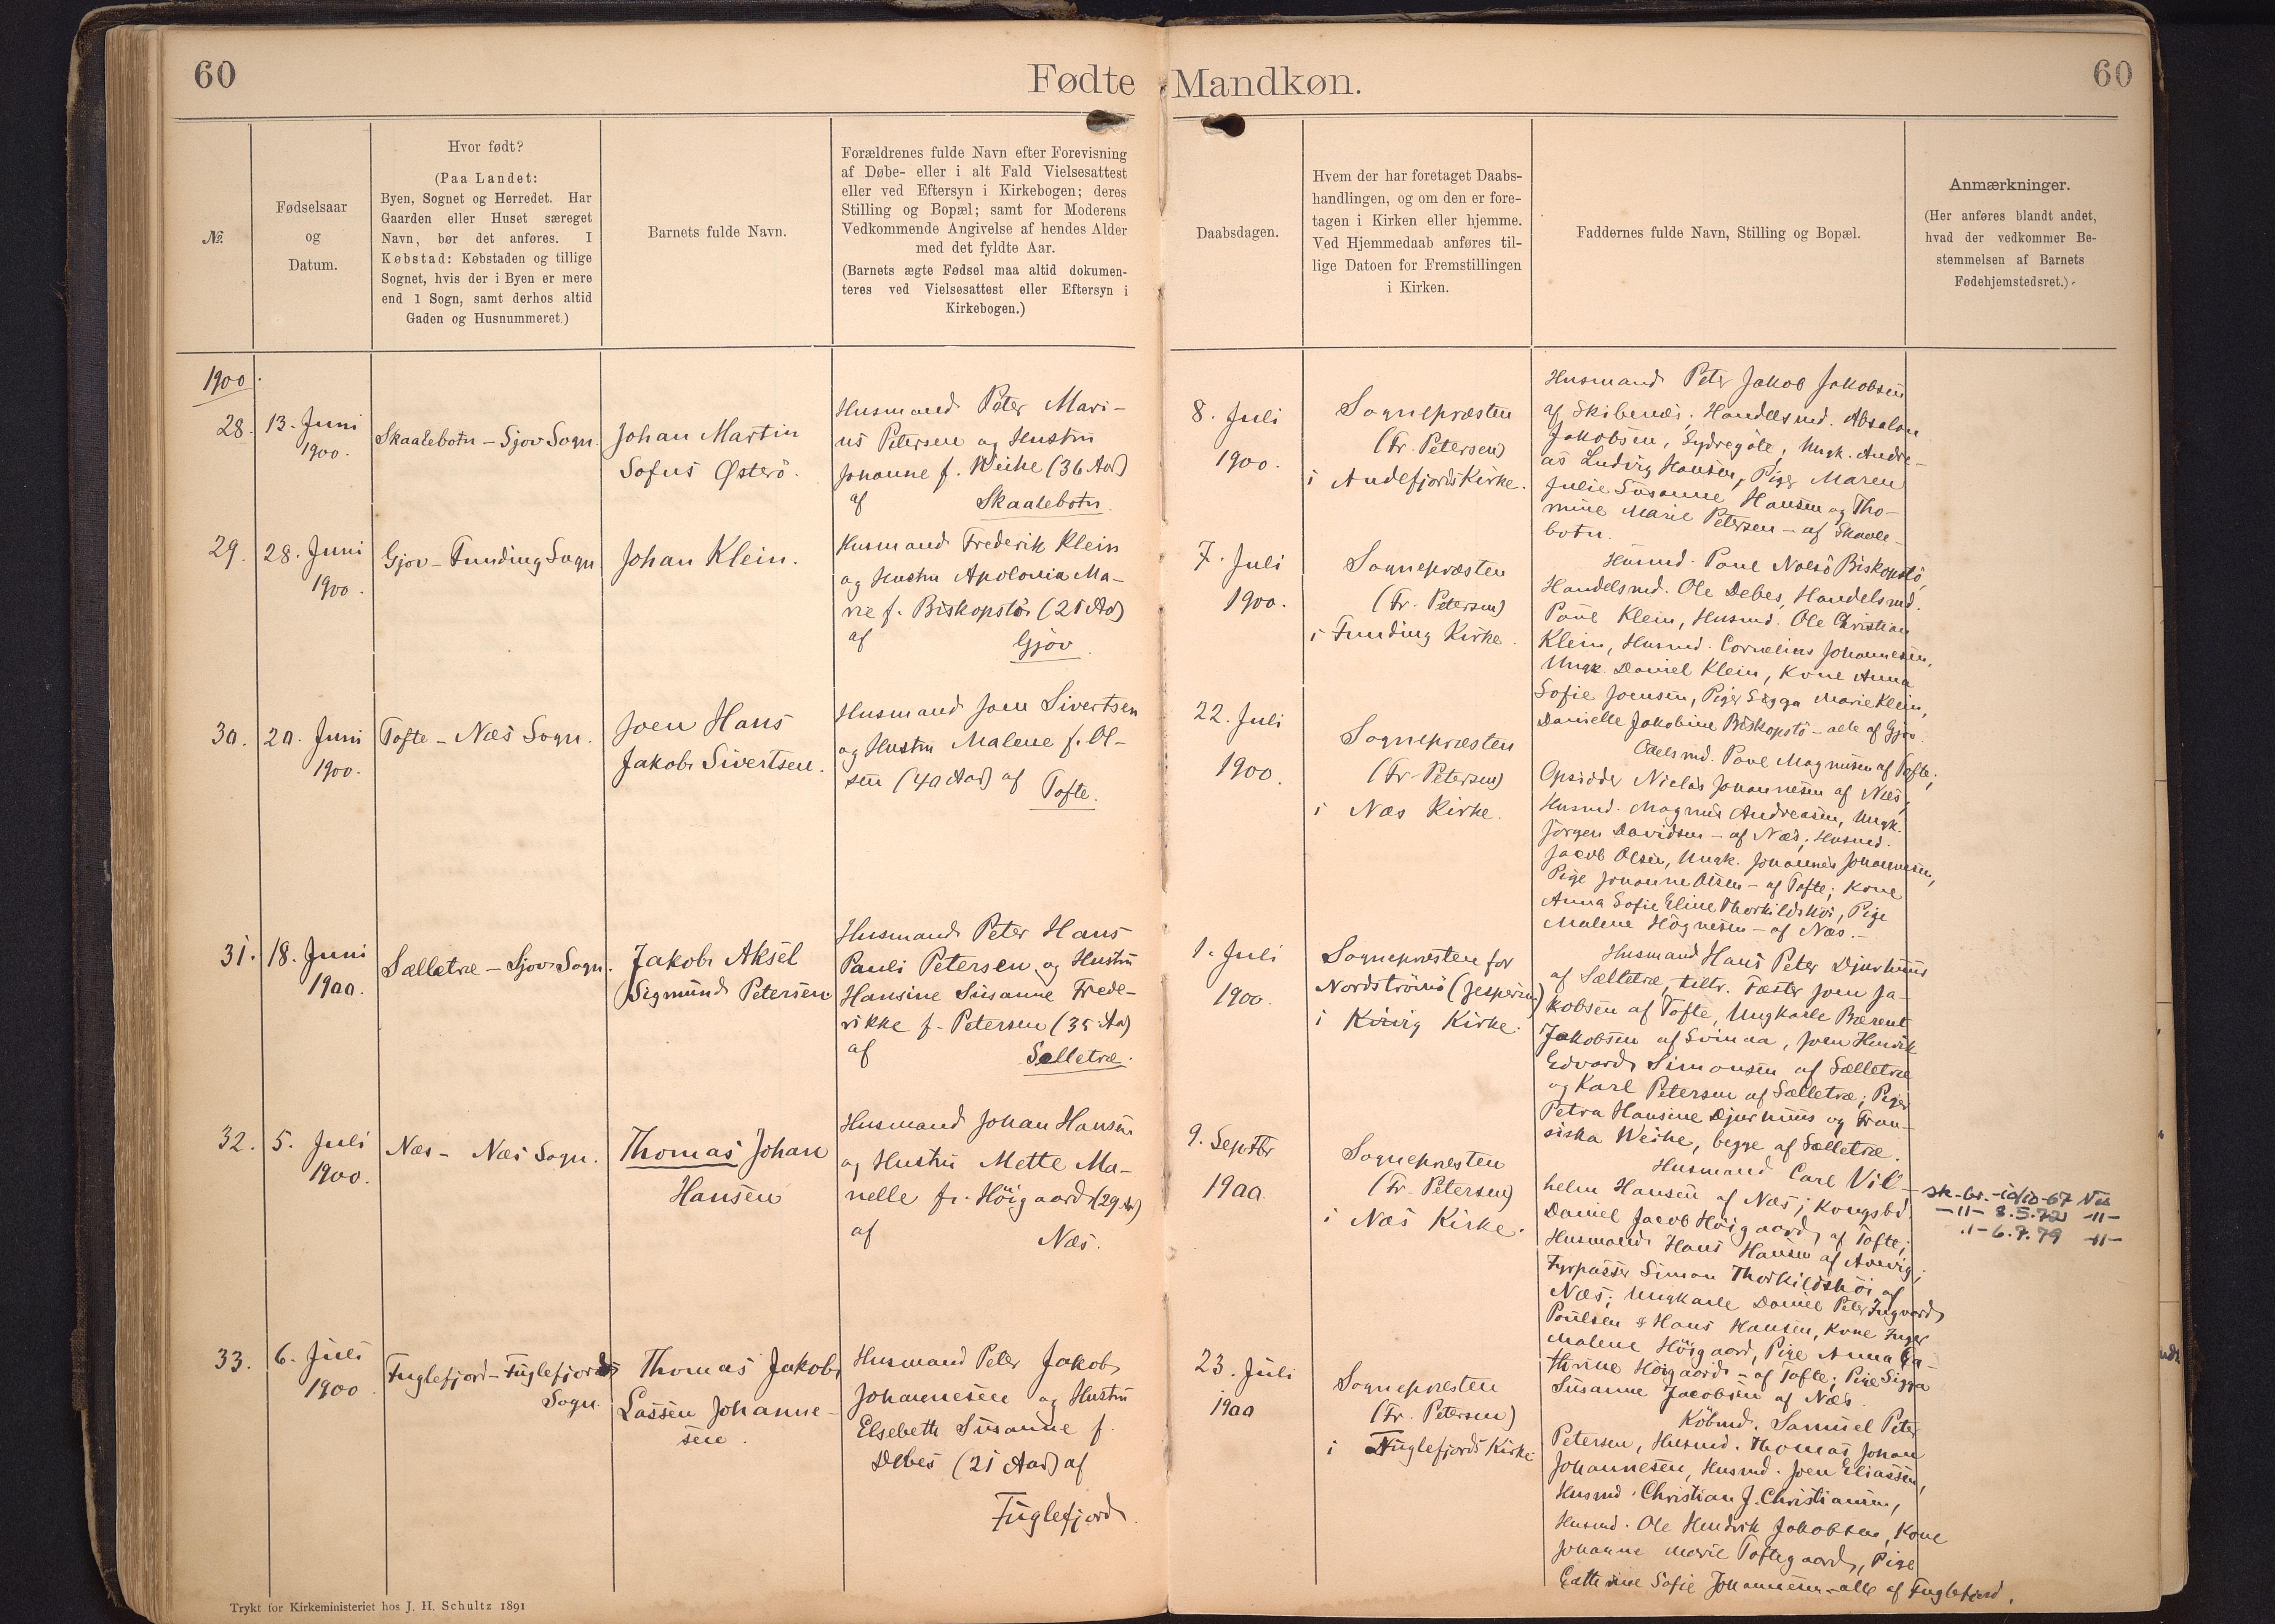 60
Fødte
№.
Fødselsaar
og
Datum.
Hvor født?
(Paa Landet:
Byen, Sognet og Herredet. Har
Gaarden eller Huset særeget
Navn, bør det anføres. I
Købstad: Købstaden og tillige
Sognet, hvis der i Byen er mere
end 1 Sogn, samt derhos altid
Gaden og Husnummeret.)
Barnets fulde Navn.
Forældrenes fulde Navn efter Forevisning
af Døbe- eller i alt Fald Vielsesattest
eller ved Eftersyn i Kirkebogen; deres
Stilling og Bopæl; samt for Moderens
Vedkommende Angivelse af hendes Alder
med det fyldte Aar.
(Barnets ægte Fødsel maa altid dokumen-
teres ved Vielsesattest eller Eftersyn i
Kirkebogen.)
1900.
28.
13. Juni
1900.
Skaalebotn - Sjov Sogn.
Johan Martin
Sofus Østerö.
Husmand Peter Mari-
us Petersen og Hustru
Johanne f. Weihe (36 Aar)
af Skaalebotn.
29.
28. Juni
1900.
Gjov - Funding Sogn
Johan Klein.
Husmand Frederik Klein
og Hustru Apolonia Ma-
rie f. Biskopstö (21 Aar)
af Gjov.
30.
20. Juni
1900.
Tofte - Næs Sogn.
Joen Hans
Jakob Sivertsen.
Husmand Joen Sivertsen
og Hustru Malene f. Ol-
sen (40 Aar) af Tofte.
31.
18. Juni
1900.
Sælletræ - Sjov Sogn.
Jakob Aksel
Sigmund Petersen
Husmand Peter Hans
Pauli Petersen og Hustru
Hansine Susanne Frede-
rikke f. Petersen (35 Aar)
af Sælletræ.
32.
5. Juli
1900.
Næs - Næs Sogn.
Thomas Johan
Hansen
Husmand Johan Hansen
og Hustru Mette Ma-
nelle f. Höigaard (29 Aar)
af Næs.
33.
6. Juli
1900.
Fuglefjord - Fuglefjords
Sogn.
Thomas Jakob
Lassen Johanne-
sen.
Husmand Peter Jakob
Johannesen og Hustru
Elsebeth Susanne f.
Debes (21 Aar) af
Fuglefjord.
Trykt for Kirkeministeriet hos J. H. Schultz 1891
Mandkøn.
60
Daabsdagen.
Hvem der har foretaget Daabs-
handlingen, og om den er fore-
tagen i Kirken eller hjemme.
Ved Hjemmedaab anføres til-
lige Datoen for Fremstillingen
i Kirken.
Faddernes fulde Navn, Stilling og Bopæl.
Anmærkninger.
(Her anføres blandt andet,
hvad der vedkommer Be-
stemmelsen af Barnets
Fødehjemstedsret.)
8. Juli
1900.
Sognepræsten
(Fr. Petersen)
i Andefjords Kirke.
Husmand Peter Jakob Jakobsen
af Skibenæs, Handelsmd. Absalon
Jakobsen, Sydregöte, Ungk. Andre-
as Ludvig Hansen, Piger Maren
Julie Susanne Hansen og Tho-
mine Marie Petersen - af Skaale-
botn.
7. Juli
1900.
Sognepræsten
(Fr. Petersen)
i Funding Kirke.
Husmd. Poul Nolsö Biskopstö,
Handelsmd. Ole Debes, Handelsmd.
Poul Klein, Husmd. Ole Christian
Klein, Husmd. Cornelius Johannesen,
Ungk. Daniel Klein, Kone Anna
Sofie Joensen, Piger Sigga Marie Klein,
Danielle Jakobine Biskopstö - alle af Gjov.
22. Juli
1900.
Sognepræsten
(Fr. Petersen)
i Næs Kirke.
Odelsmd. Poul Magnusen af Tofte;
Opsidder Niclas Johannesen af Næs,
Husmd. Magnus Andreasen, Ungk.
Jörgen Davidsen - af Næs, Husmd.
Jacob Olsen, Ungk. Johannes Johannesen,
Pige Johanne Olsen - af Tofte; Kone
Anna Sofie Eline Thorkildshöi, Pige
Malene Högnesen - af Næs.-
1. Juli
1900.
Sognepræsten for
Nordströmö (Jespersen)
i Kvivig Kirke.
Husmand Hans Peter Djurhuus
af Sælletræ, tiltr. Fæster Joen Ja-
kobsen af Tofte, Ungkarle Bærent
Jakobsen af Svinaa, Joen Hendrik
Edvard Simonsen af Sælletræ
og Karl Petersen af Sælletræ; Piger
Petra Hansine Djurhuus og Fran-
siska Weihe, begge af Sælletræ.
9. Septbr
1900.
Sognepræsten
(Fr. Petersen)
i Næs Kirke.
Husmand Carl Vil-
helm Hansen af Næs; Kongsbd.
Daniel Jacob Höigaard, af Tofte;
Husmand Hans Hansen af
Fyrpasser Simon Thorkildshöi af
Næs; Ungkarle Daniel Peter Ingvard
Poulsen & Hans Hansen, Kone Inger
Malene Höigaard, Pige Anna Ca-
thrine Höigaard - af Tofte; Pige Sigga
Susanne Jacobsen af Næs.
sk-br.-10/10-67 Nes
-11- 8.5.72 -11-
.1- 6.7.79 -11-
23. Juli
1900
Sognepræsten
(Fr. Petersen)
i Fuglefjords Kirke
Köbmd. Samuel Peter
Petersen, Husmd. Thomas Johan
Johannesen, Husmd. Joen Eliassen,
Husmd. Christian J. Christiansen,
Husmd. Ole Hendrik Jakobsen, Kone
Johanne Marie Toftegaard, Pige
Cathrine Sofie Johannesen - alle af Fuglefjord.